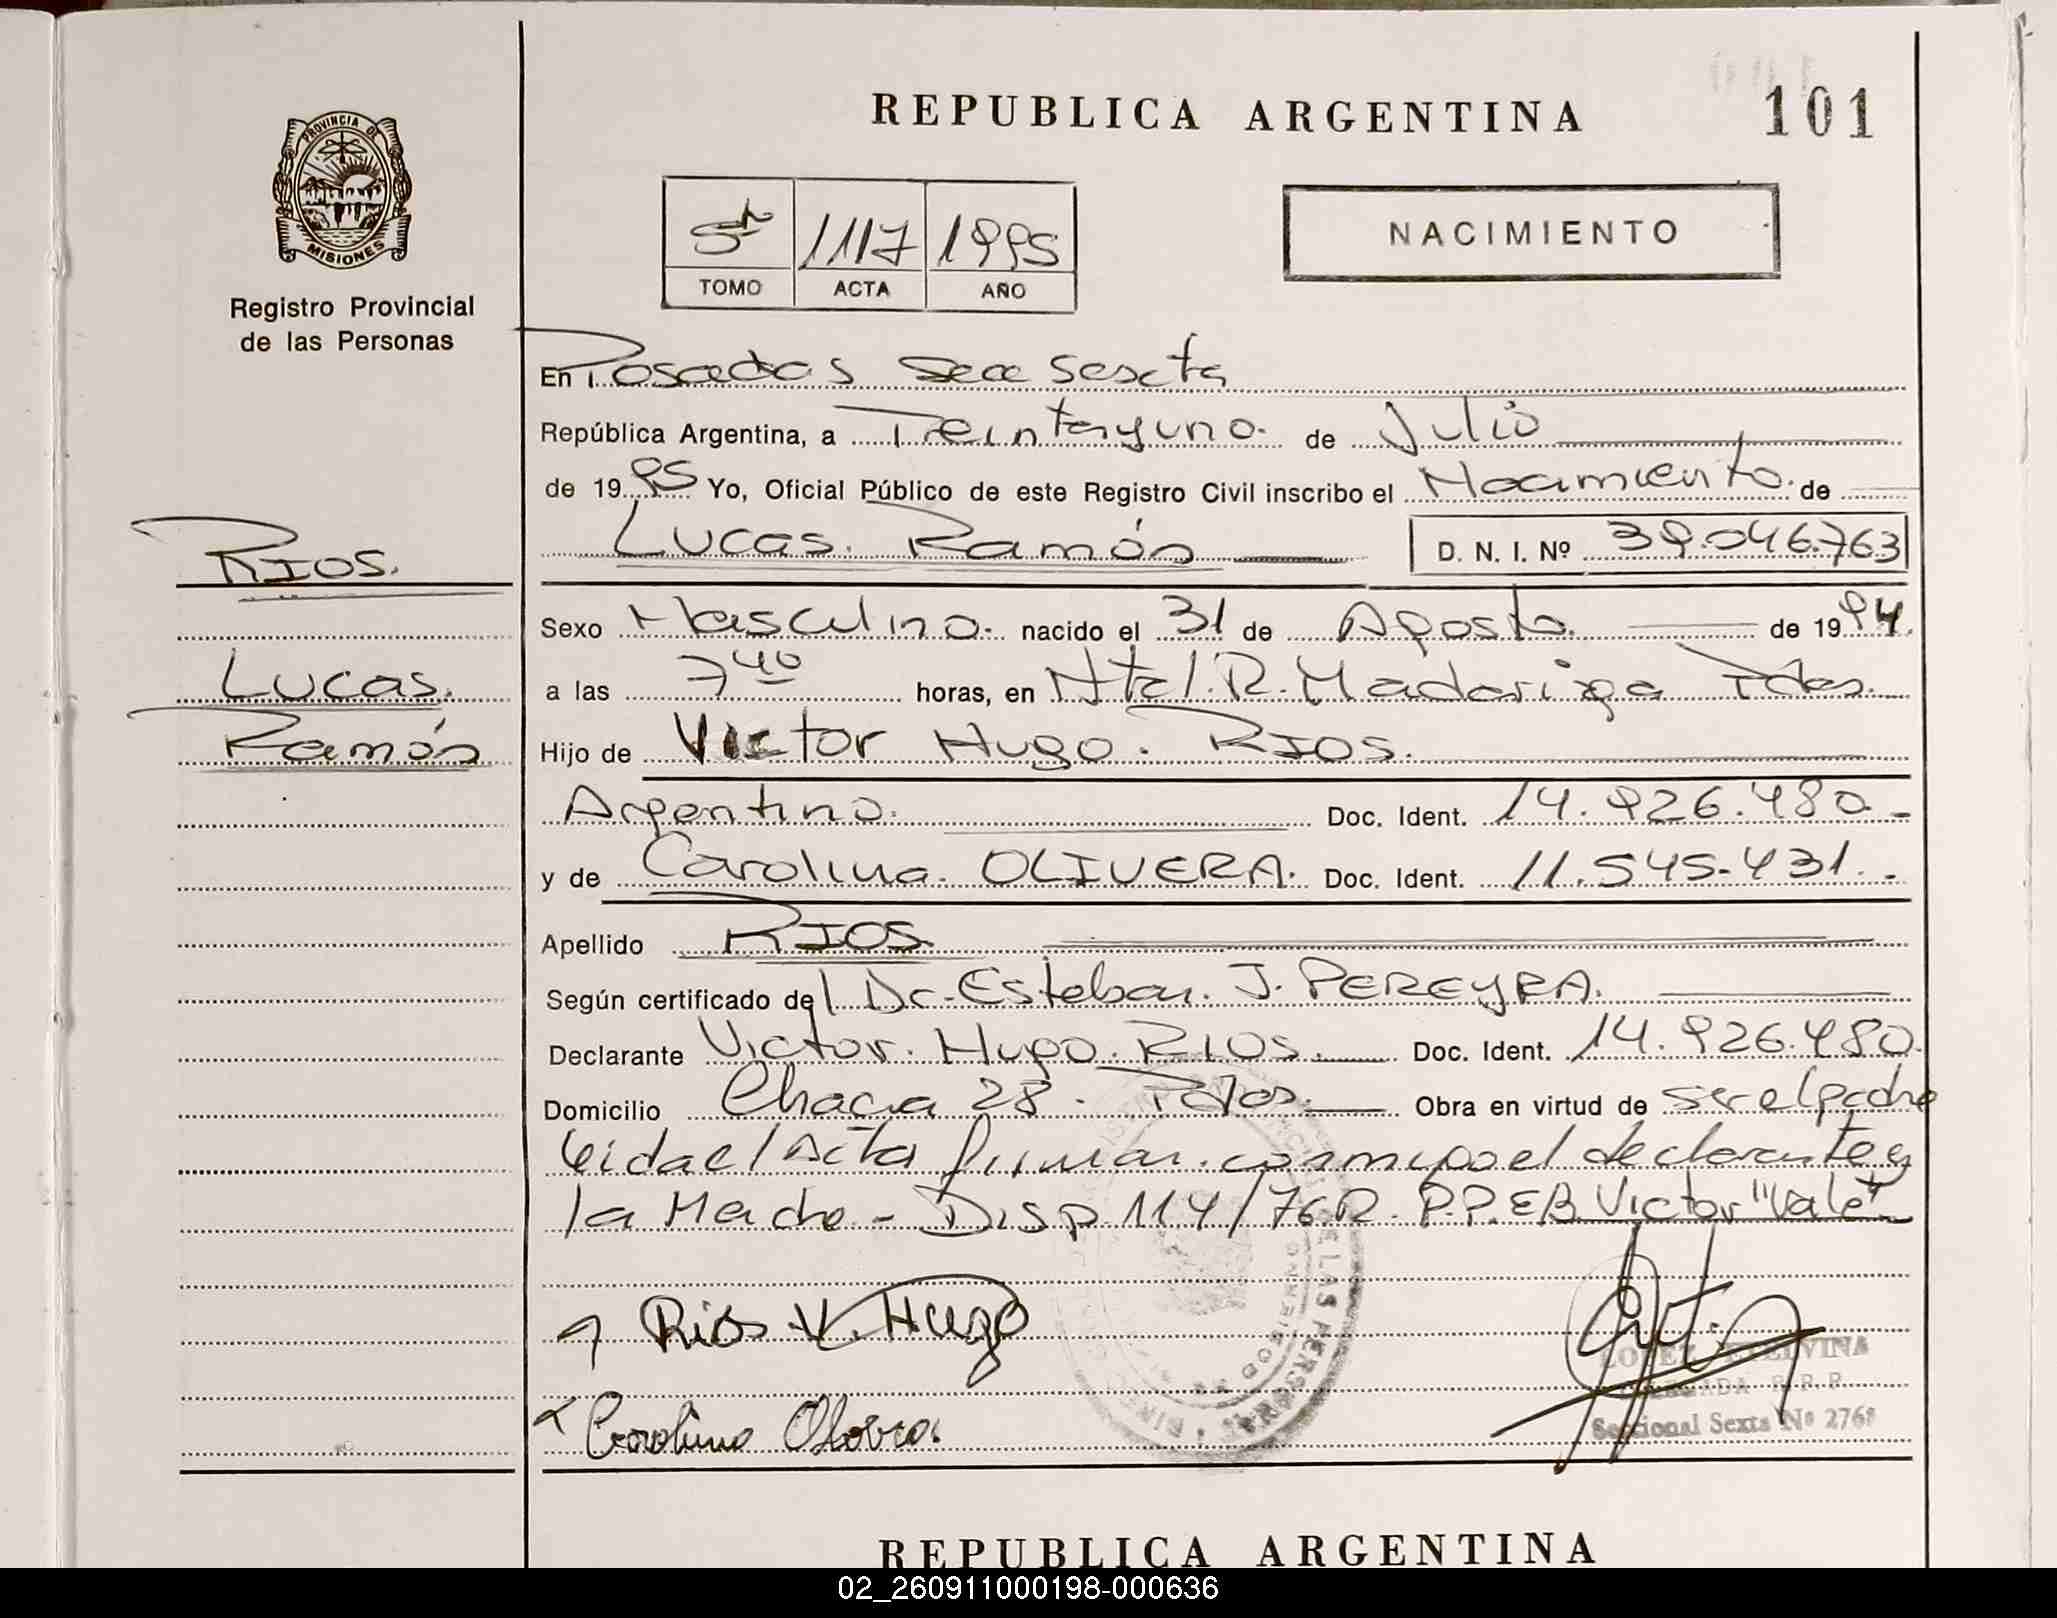 REPUBLICA ARGENTINA
101
PROVINCIA DE
MISIONES
Registro Provincial
de las Personas
5to 1117 1995
TOMO ACTA AÑO
NACIMIENTO
En Posadas Secc Sexta
República Argentina, a Treintayuno de Julio
de 1995 Yo, Oficial Público de este Registro Civil inscribo el Nacimiento de
Lucas Ramón D. N. I. Nº 39.046.763
RIOS.
Lucas.
Ramón
Sexo Masculino. nacido el 31 de Agosto. de 1994.
a las 7 40 horas, en Htal. R. Madariaga Pdas.
Hijo de Victor Hugo. RIOS.
Argentino. Doc. Ident. 14.926.480.-
y de Carolina. OLIVERA. Doc. Ident. 11.545.431.-
Apellido RIOS
Según certificado del Dr. Esteban. J. PEREYRA.
Declarante Victor. Hugo. RIOS. Doc. Ident. 14.926.480.
Domicilio Chacra 28. Pdas. Obra en virtud de ser el padre
Leida el Acta firman conmigo el declarante y
la Madre - Disp 114/76. P.P.EB. Victor "Vale"
Rios V. Hugo
Carolina Olivera.
LOPEZ ETELVINA
DELEGADA R.R.P.
Seccional Sexta Nº 2768
REPUBLICA ARGENTINA
02_260911000198-000636